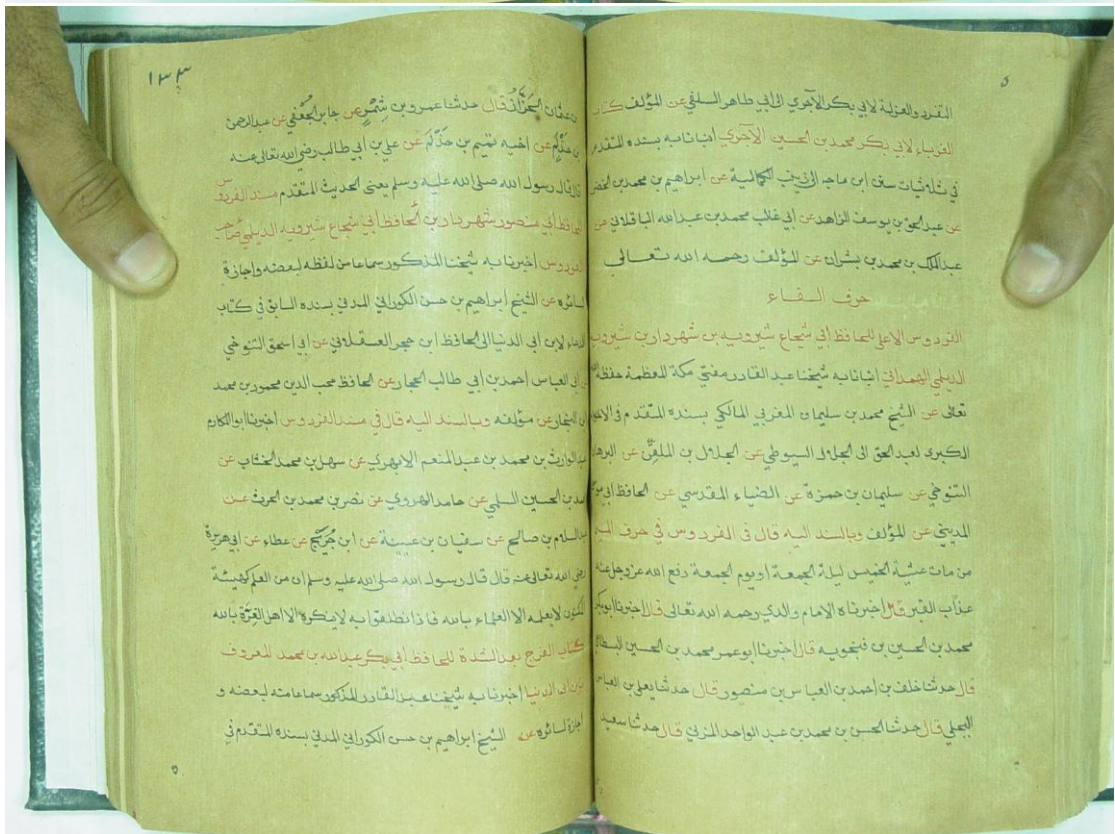 التفرد والعزلة لابي بكر الآجري الى ابي طاهر السلفي عن المؤلف كتاب
الغرباء لابي بكر محمد بن الحسين الآجري انبانا به بسنده المتقدم
في ثلاثيات سنن ابن ماجه الى زينب الكمالية عن ابراهيم بن محمد بن الخضر
عن عبد الحق بن يوسف الزاهد عن ابي غالب محمد بن عبد الله الباقلاني عن
عبد الملك بن محمد بن بشران عن المؤلف رحمه الله تعالى
حرف الفاء
الفردوس الاعلى للحافظ ابي شجاع شيرويه بن شهردار بن شيرويه
الديلمي الهمداني انبانا به شيخنا عبد القادر مفتي مكة المعظمة حفظه الله
تعالى عن الشيخ محمد بن سليمان المغربي المالكي بسنده المتقدم في
الكبرى لعبد الحق الى الجلال السيوطي عن الجلال بن الملقن عن البرهان
التنوخي عن سليمان بن حمزة عن الضياء المقدسي عن الحافظ ابي موسى
المديني عن المؤلف وبالسند اليه قال في الفردوس في حرف الميم
من مات عشية الخميس ليلة الجمعة او يوم الجمعة رفع الله عز وجل عنه
عذاب القبر قال اخبرناه الامام والدي رحمه الله تعالى قال اخبرنا ابو بكر
محمد بن الحسين بن فنجويه قال اخبرنا ابو عمر محمد بن الحسين البسطامي
قال حدثنا خلف بن احمد بن العباس بن منصور قال حدثنا يعلى بن العباس
البجلي قال حدثنا الحسن بن محمد بن عبد الواحد المزني قال حدثنا سعيد
١٣٣
بن عثمان الخزاز قال حدثنا عمرو بن شمر عن جابر الجعفي عن عبد الرحمن
بن حذلم عن اخيه تميم بن حذلم عن علي بن ابي طالب رضي الله تعالى عنه
قال قال رسول الله صلى الله عليه وسلم يعني الحديث المتقدم مسند الفردوس
للحافظ أبي منصور شهردار بن الحافظ أبي شجاع شيرويه الديلمي صاحب
الفردوس اخبرنا به شيخنا المذكور سماعا من لفظه لبعضه واجازة
لسائره عن الشيخ ابراهيم بن حسن الكوراني المدني بسنده السابق في كتاب
الدعاء لابن ابي الدنيا الى الحافظ ابن حجر العسقلاني عن ابي اسحق التنوخي
عن ابي العباس احمد بن ابي طالب الحجار عن الحافظ محب الدين محمود بن محمد
ابن النجار عن مؤلفه وبالسند اليه قال في مسند الفردوس اخبرنا ابو المكارم
عبد الوارث بن محمد بن عبد المنعم الابهري عن سهل بن محمد الخشاب عن
احمد بن الحسين السلمي عن حامد الهروي عن نصر بن محمد بن الحرث عن
عبد السلام بن صالح عن سفيان بن عيينة عن ابن جريج عن عطاء عن ابي هريرة
رضي الله تعالى عنه قال قال رسول الله صلى الله عليه وسلم ان من العلم كهيئة
المكنون لا يعلمه الا العلماء بالله فاذا نطقوا به لا ينكره الا اهل الغرة بالله
كتاب الفرج بعد الشدة للحافظ أبي بكر عبد الله بن محمد المعروف
بابن ابي الدنيا اخبرنا به شيخنا عبد القادر المذكور سماعا منه لبعضه و
اجازة لسائره عن الشيخ ابراهيم بن حسن الكوراني المدني بسنده المتقدم في